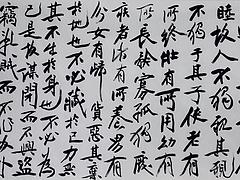 睦故人不獨親其親
不獨子其子使老有
所終壯有所用幼有
所長矜寡孤獨廢
疾者皆有所養男有
分女有歸貨惡其棄
於地也不必藏於己力惡
其不出於身也不必為
己是故謀閉而不興盜
竊亂賊而不作故外